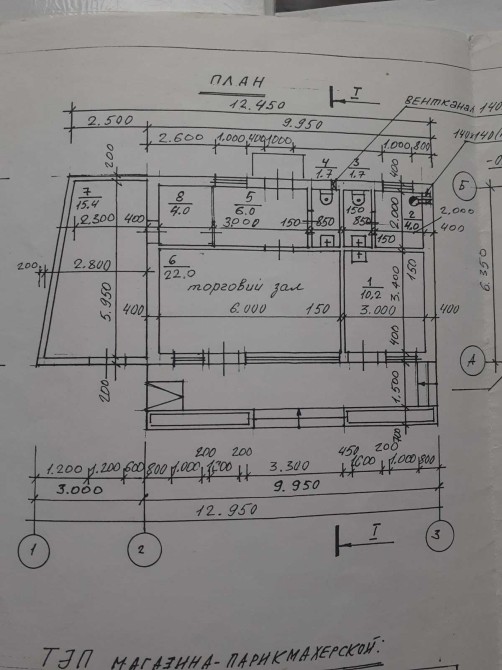 ПЛАН
I
12.450
ВЕНТКАНАЛ 140
2.500
9.950
2.600
1.000
400
1.000
1.000
800
4
1.7
3
1.7
200
7
15.4
8
4.0
5
6.0
400
Б
2.300
400
3.000
150
850
150
850
2.000
2
4.0
2.000
150
400
6
22,0
ТОРГОВИЙ ЗАЛ
200
2.800
1
10,2
3.400
150
6.350
5.950
400
6.000
150
3.000
400
400
А
200
1.500
200
200
450
200
1.200
1.200
600
800
1.000
3.300
1.000
800
3.000
9.950
12.950
1
2
I
3
ТЭП МАГАЗИНА-ПАРИКМАХЕРСКОЙ: